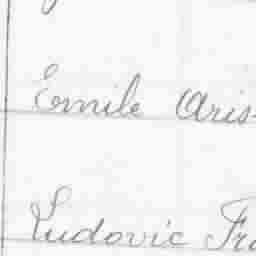 Emile Aris
Ludovic Fra